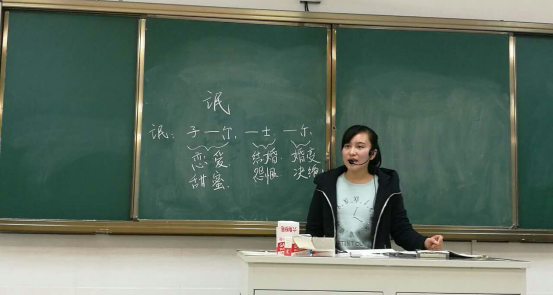 氓
氓：子—尔 —士 —尔
恋爱 结婚 婚变
甜蜜 怨恨 决绝